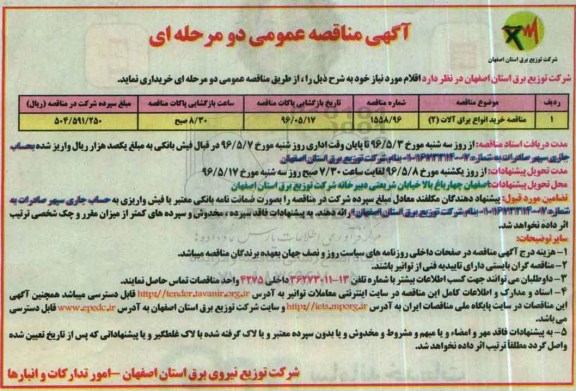 آگهی مناقصه عمومی دو مرحله ای
شرکت توزیع برق استان اصفهان
شرکت توزیع برق استان اصفهان در نظر دارد اقلام مورد نیاز خود به شرح ذیل را، از طریق مناقصه عمومی دو مرحله ای خریداری نماید.
ردیف موضوع مناقصه شماره مناقصه تاریخ بازگشایی پاکات مناقصه ساعت بازگشایی پاکات مناقصه مبلغ سپرده شرکت در مناقصه (ریال)
۱ مناقصه خرید انواع یراق آلات (۲) ۱۵۵۸/۹۶ ۹۶/۰۵/۱۷ ۸/۳۰ صبح ۵۰۴/۵۹۱/۲۵۰
مدت دریافت اسناد مناقصه: از روز سه شنبه مورخ ۹۶/۵/۳ تا پایان وقت اداری روز شنبه مورخ ۹۶/۵/۷ در قبال فیش بانکی به مبلغ یکصد هزار ریال واریز شده بحساب
جاری سپهر صادرات به شماره بنام شرکت توزیع برق استان اصفهان
مدت تحویل پیشنهادات: از روز یکشنبه مورخ ۹۶/۵/۸ لغایت ساعت ۷/۳۰ صبح روز سه شنبه مورخ ۹۶/۵/۱۷
محل تحویل پیشنهادات: اصفهان چهارباغ بالا خیابان شریعتی دبیرخانه شرکت توزیع برق استان اصفهان
تضامین مورد قبول: پیشنهاد دهندگان مکلفند معادل مبلغ سپرده شرکت در مناقصه را بصورت ضمانت نامه بانکی معتبر یا فیش واریزی به حساب جاری سپهر صادرات به
شماره بنام شرکت توزیع برق استان اصفهان ارائه دهند. به پیشنهادات فاقد سپرده، مخدوش و سپرده های کمتر از میزان مقرر و چک شخصی ترتیب
اثر داده نخواهد شد.
سایر توضیحات:
۱- هزینه درج آگهی مناقصه در صفحات داخلی روزنامه های سیاست روز و نصف جهان بعهده برندگان مناقصه میباشد.
۲- مناقصه گران بایستی دارای تاییدیه فنی از توانیر باشند.
۳- داوطلبان می توانند جهت کسب اطلاعات بیشتر با شماره تلفن ۱۳-۳۶۲۷۳۰۱۱ داخلی ۴۲۷۵ واحد مناقصات تماس حاصل نمایند.
۴- اسناد و مدارک و اطلاعات کامل این مناقصه در سایت اینترنتی معاملات توانیر به آدرس http://tender.tavanir.org.ir قابل دسترسی میباشد همچنین آگهی
این مناقصات در سایت پایگاه ملی مناقصات ایران به آدرس http://iets.mporg.ir و سایت شرکت توزیع برق استان اصفهان به آدرس www.epedc.ir قابل دسترسی
می باشد.
۵- به پیشنهادات فاقد مهر و امضاء و یا مبهم و مشروط و مخدوش و یا بدون سپرده معتبر و یا لاک گرفته شده با لاک غلطگیر و یا پیشنهاداتی که پس از تاریخ تعیین شده
واصل گردد مطلقا ترتیب اثر داده نخواهد شد.
شرکت توزیع نیروی برق استان اصفهان – امور تدارکات و انبارها